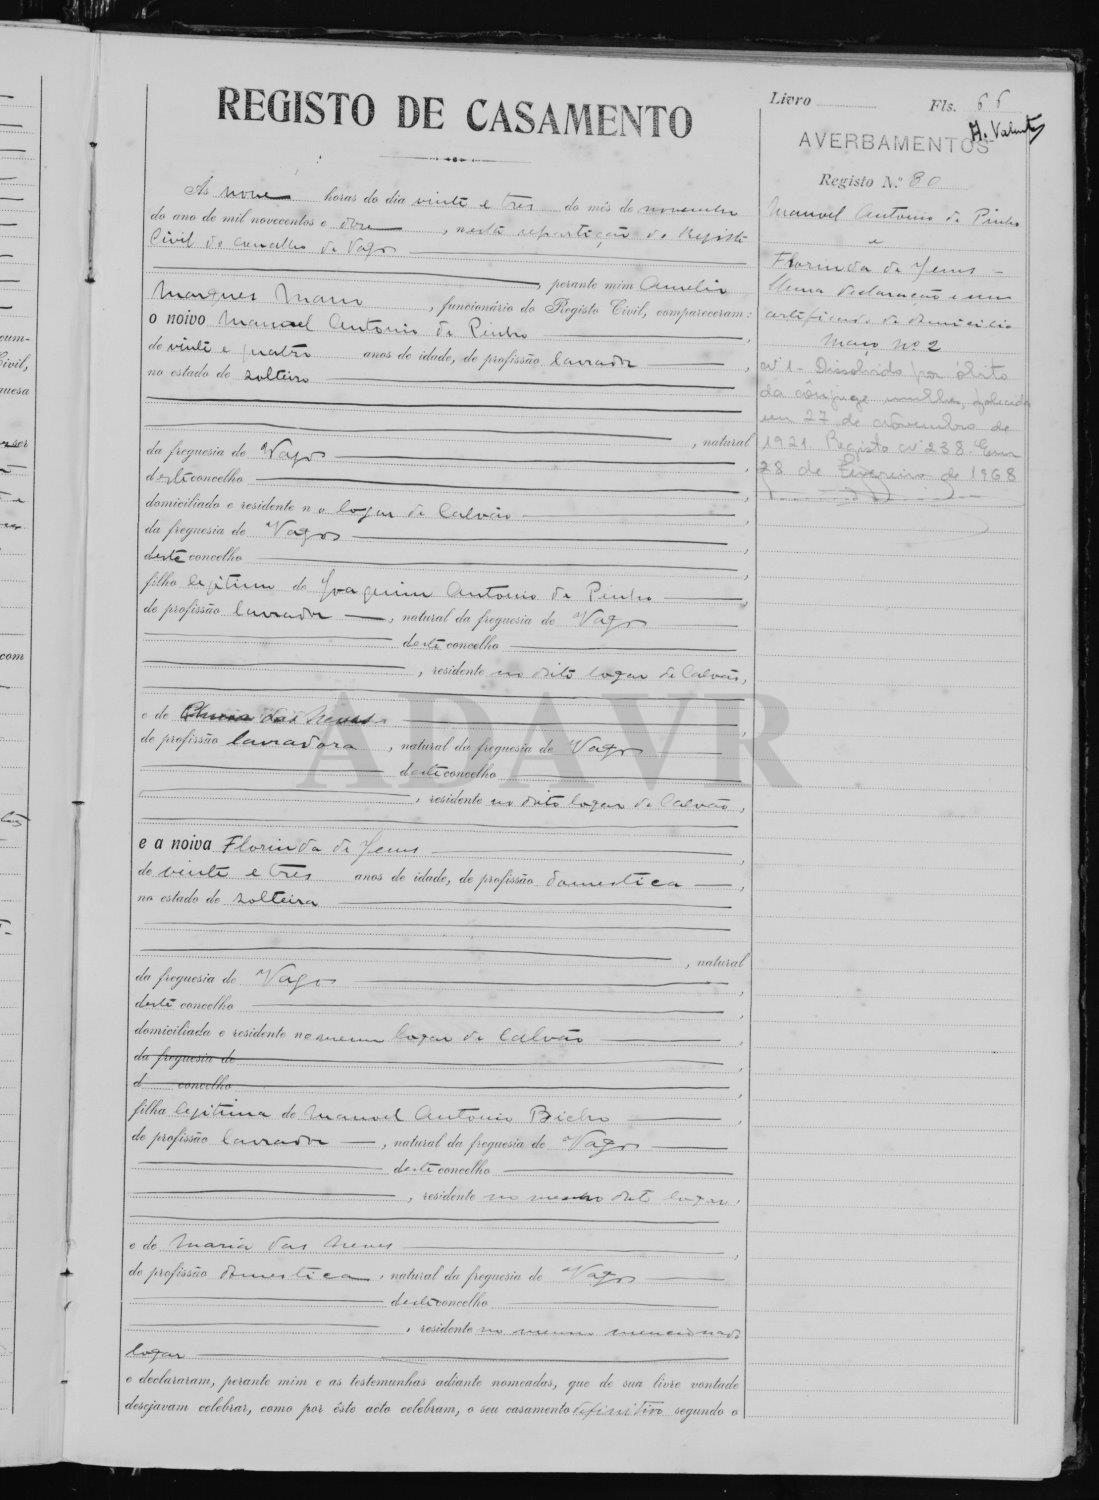 REGISTO DE CASAMENTO
Livro Fls. 66
A. Valente
AVERBAMENTOS
Registo N.º 80
Manuel Antonio de Pinho
e
Florinda de Jesus
Uma declaração e um
certificado de domicilio
Maço nº 2
Nº 1 - Dissolvido por obito
da cônjuge mulher, falecida
em 27 de Novembro de
1921. Registo nº 238. Em
28 de Fevereiro de 1968
Às nove horas do dia vinte e tres do mês de novembro
do ano de mil novecentos e doze, nesta repartição do Registo
Civil do concelho de Vagos
, perante mim Amelio
Marques Mano, funcionário do Registo Civil, compareceram:
o noivo Manuel Antonio de Pinho
de vinte e quatro anos de idade, de profissão lavrador,
no estado de solteiro
, natural
da freguesia de Vagos,
deste concelho,
domiciliado e residente no logar de Calvão,
da freguesia de Vagos,
deste concelho,
filho legitimo de Joaquim Antonio de Pinho,
de profissão lavrador, natural da freguesia de Vagos
deste concelho
, residente no dito logar de Calvão,
e de das Neves,
de profissão lavradora, natural da freguesia de Vagos
deste concelho
, residente no dito logar de Calvão,
e a noiva Florinda de Jesus,
de vinte e tres anos de idade, de profissão domestica,
no estado de solteira
, natural
da freguesia de Vagos,
deste concelho,
domiciliada e residente no mesmo logar de Calvão,
da freguesia de,
d concelho,
filha legitima de Manuel Antonio Bicho,
de profissão lavrador, natural da freguesia de Vagos
deste concelho
, residente no mesmo dito logar,
e de Maria das Neves,
de profissão domestica, natural da freguesia de Vagos
deste concelho
, residente no mesmo mencionado
logar
e declararam, perante mim e as testemunhas adiante nomeadas, que de sua livre vontade
desejavam celebrar, como por êste acto celebram, o seu casamento definitivo segundo o
ADAVR